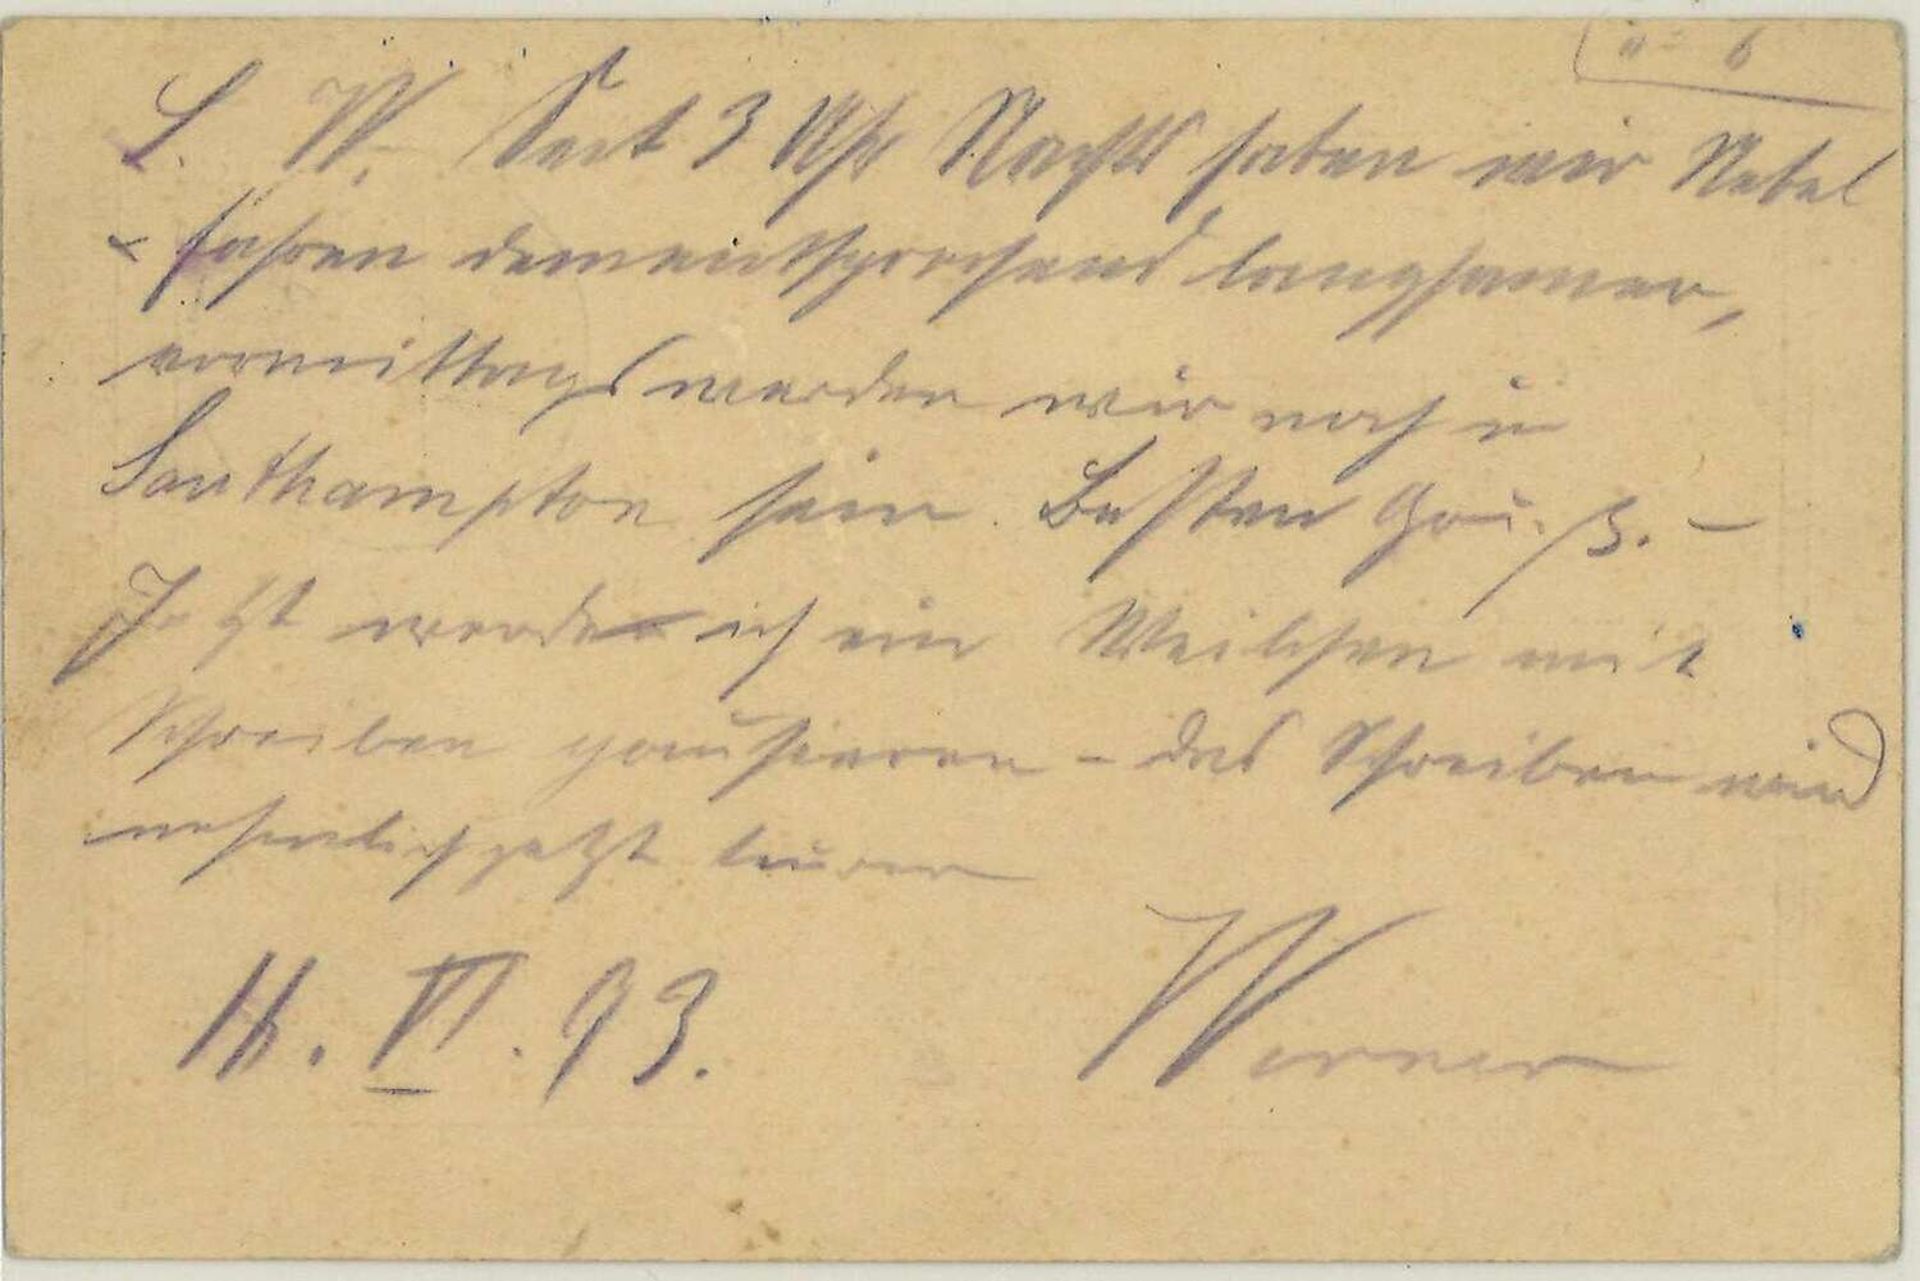 L. W. Seit 3 Uhr Nachts haben wir Nebel
& fahren dementsprechend langsamer,
vormittags werden wir noch in
Southampton sein. Besten Gruß. –
Jetzt werde ich ein Weilchen mit
Schreiben pausieren – das Schreiben wird
nehmlich jetzt teurer
VI. 93. Werner